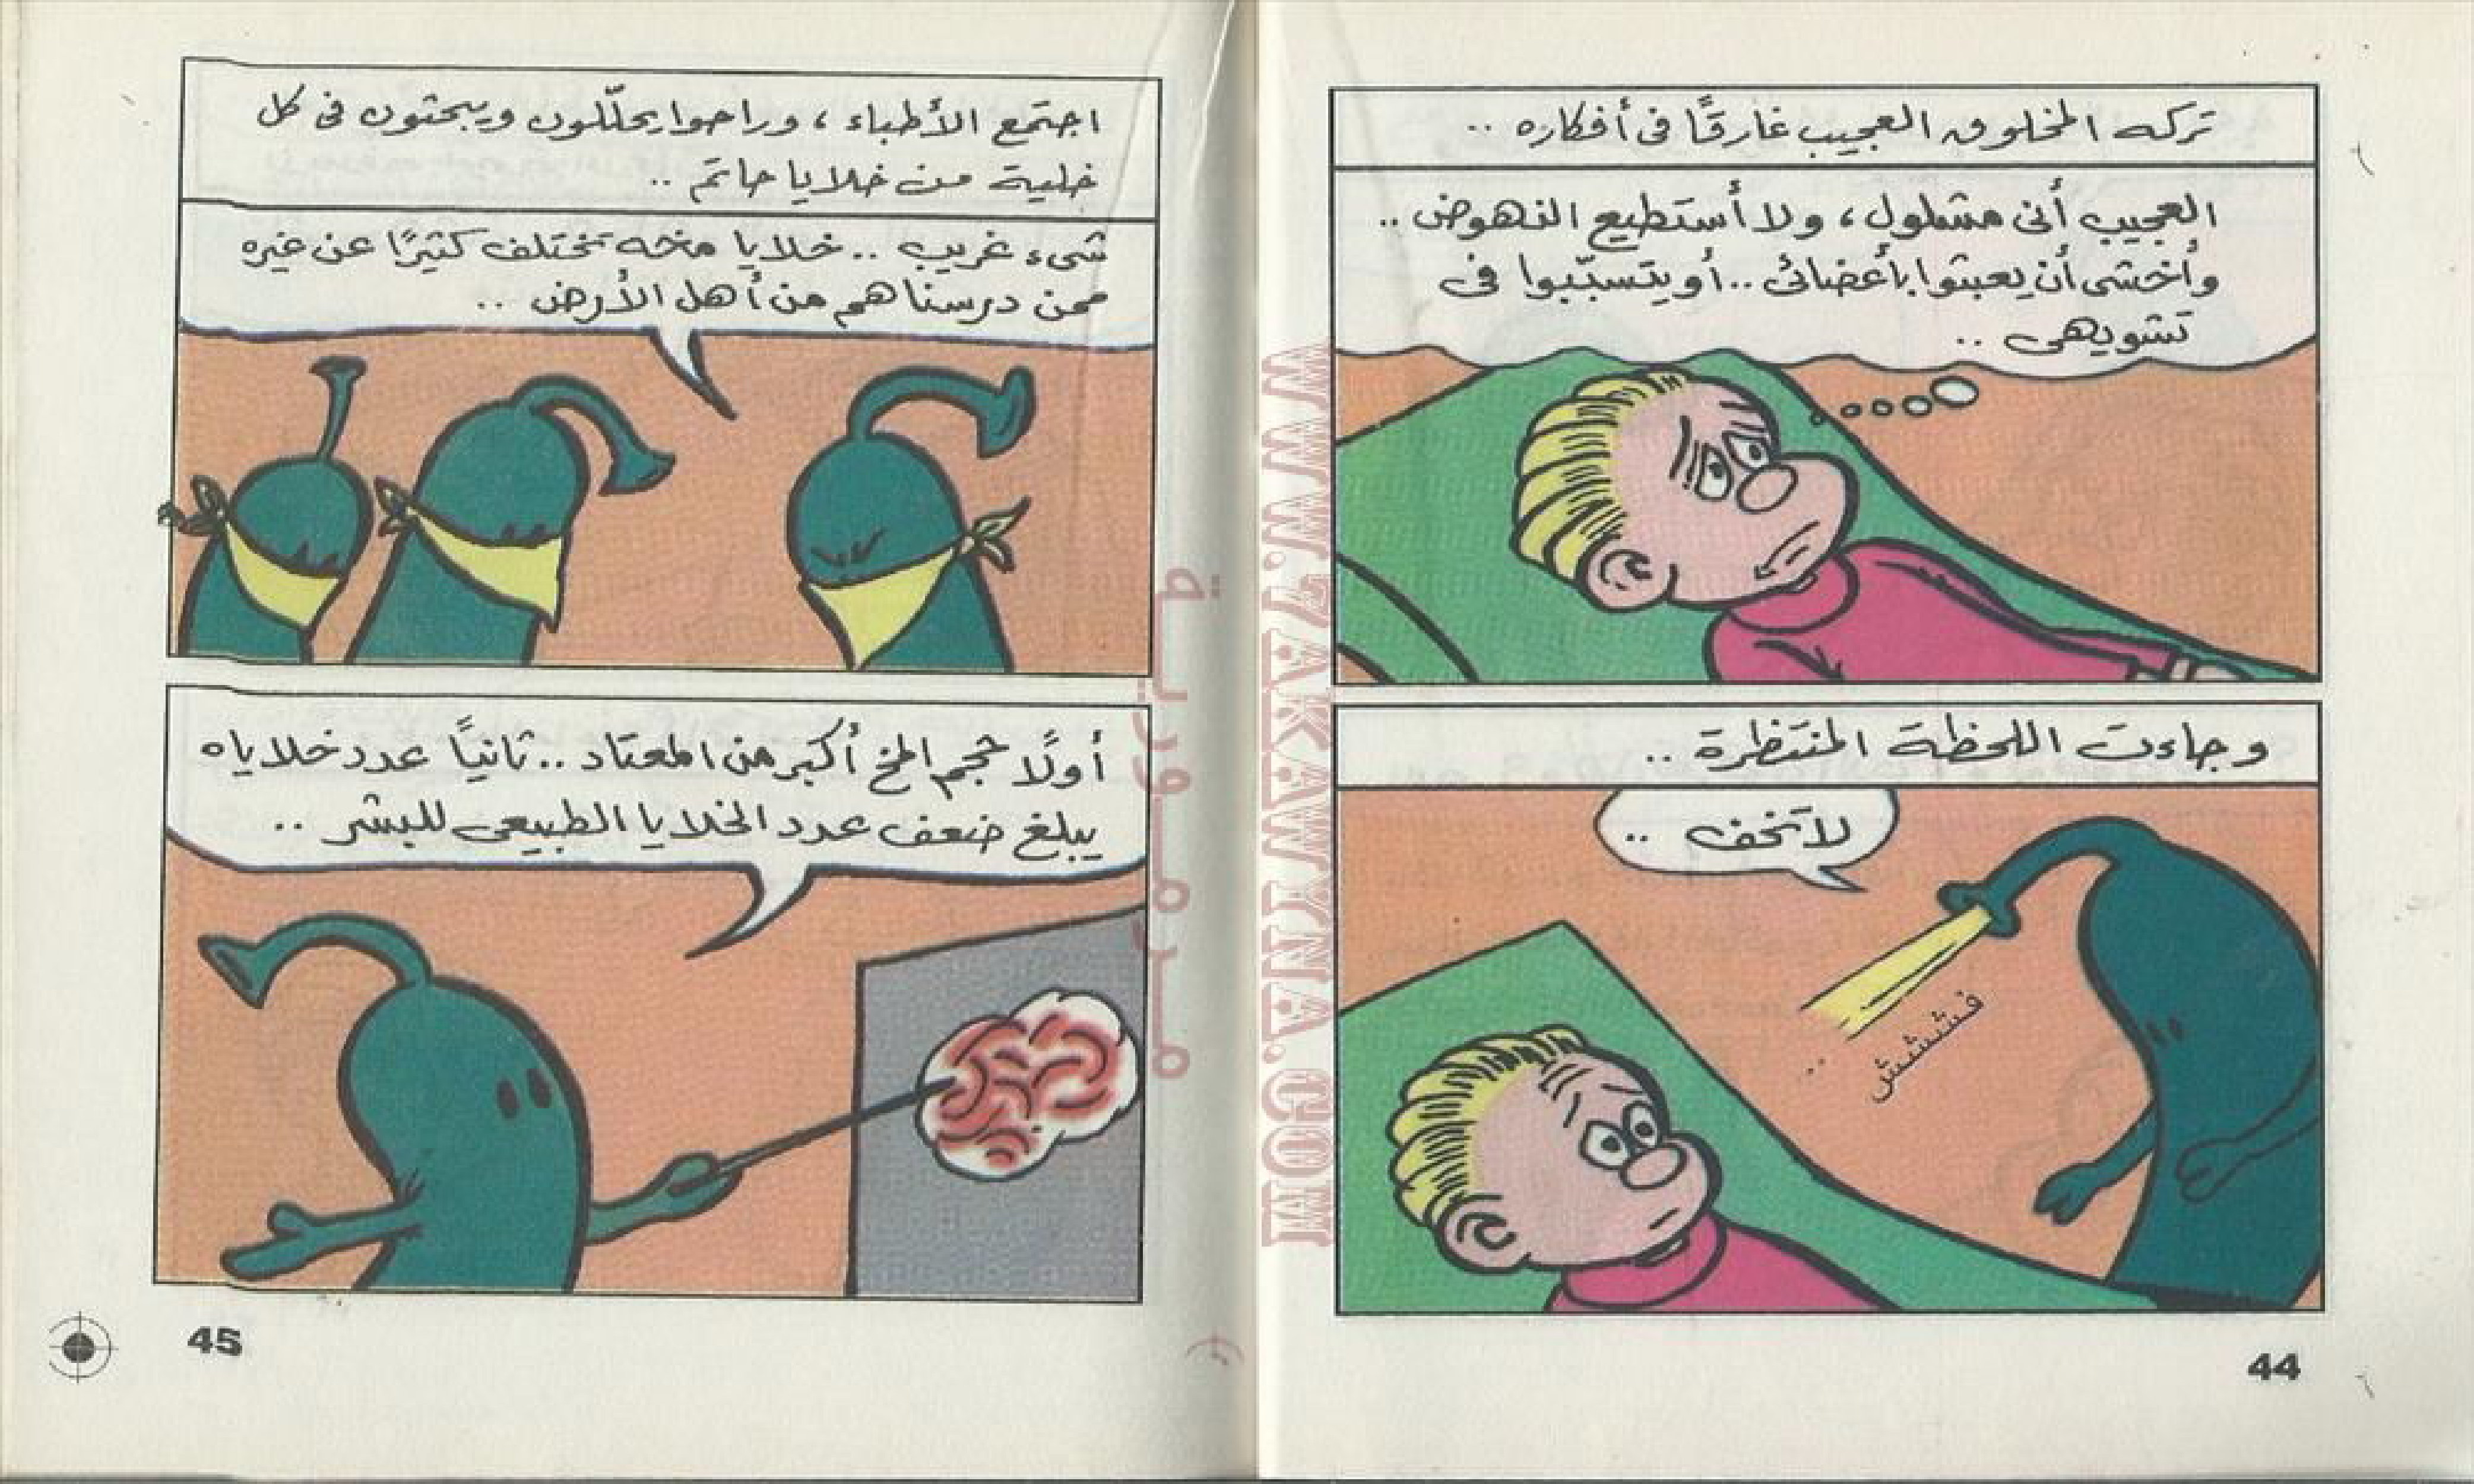 تركه المخلوق العجيب غارقًا فى أفكاره ..
العجيب أنى مشلول، ولا أستطيع النهوض ..
وأخشى أن يعبثوا بأعضائى .. أو يتسبّبوا فى
تشويهى ..
وجاءت اللحظة المنتظرة ..
لا تخف ..
فششش
..
44
اجتمع الأطباء، وراحوا يحلّلون ويبحثون فى كل
خلية من خلايا حاتم ..
شىء غريب .. خلايا مخه تختلف كثيرًا عن غيره
ممن درسناهم من أهل الأرض ..
أولًا حجم المخ أكبر من المعتاد .. ثانيًا عدد خلاياه
يبلغ ضعف عدد الخلايا الطبيعى للبشر ..
45
WWW.7AKAWYNA.COM
مرمورية